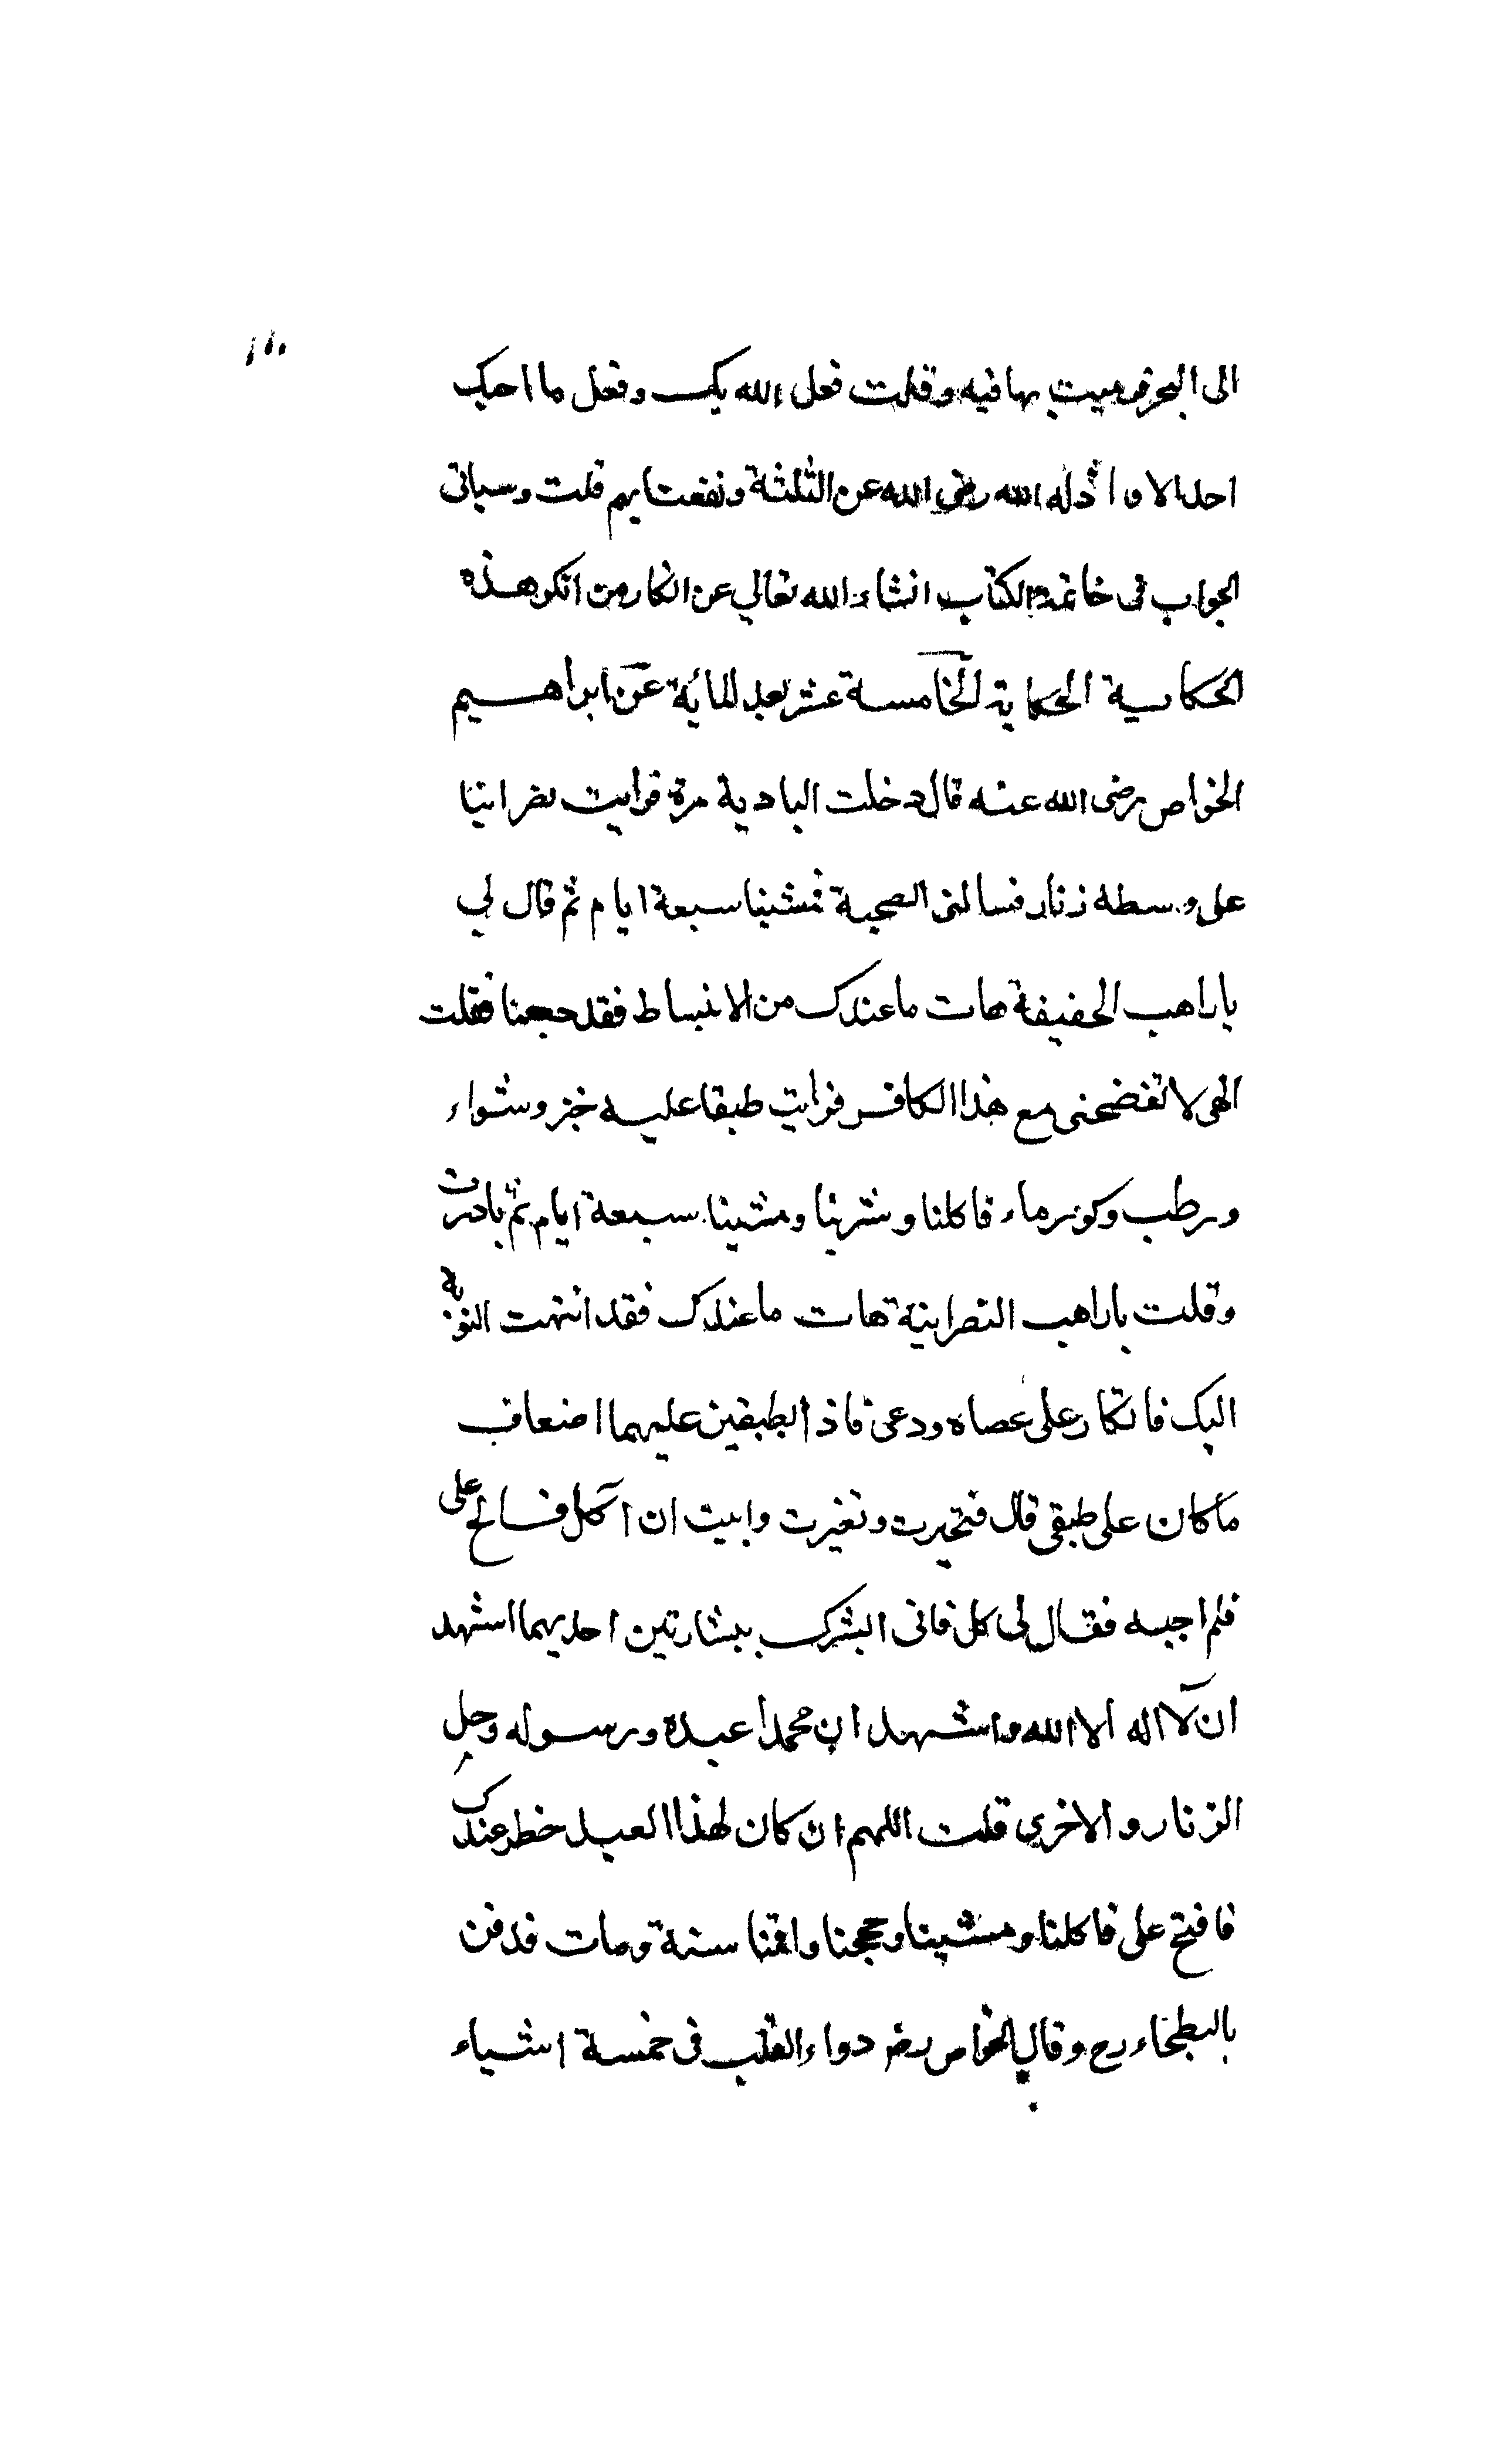 الى البحر فرميت بها فيه وقلت فعل الله بك وفعل ما احبك
احد الا واذله الله رضى الله عن الثلثة ونفعنا بهم قلت وسياتى
الجواب فى خاتمة الكتاب انشاء الله تعالي عن انكار من انكر هذه
الحكاية الحكاية الخامسة عشر بعد المائة عن ابراهيم
الخواص رضى الله عنه قال دخلت البادية مرة فرايت نصرانيا
على وسطه زنار فسالنى الصحبة فمشينا سبعة ايام ثم قال لي
ياراهب الحنيفة هات ما عندك من الانبساط فقد جعنا فقلت
الهى لا تفضحنى مع هذا الكافر فرايت طبقا عليه خبز وشواء
ورطب وكوز ماء فاكلنا وشربنا ومشينا سبعة ايام ثم بادرت
وقلت ياراهب النصرانية هات ما عندك فقد انتهت النوبة
اليك فاتكا على عصاه ودعى فاذا بطبقين عليهما اضعاف
ما كان على طبقى قال فتحيرت وتغيرت وابيت ان اكل فالح على
فلم اجبه فقال لى كل فانى ابشرك ببشارتين احديهما اشهد
ان لا اله الا الله واشهد ان محمدا عبده ورسوله وحل
الزنار والاخري قلت اللهم ان كان لهذا العبد خطر عندك
فافتح على فاكلنا ومشينا وحججنا واقمنا سنة ومات فدفن
بالبطحاء رح وقال الخواص رضه دواء القلب فى خمسة اشياء